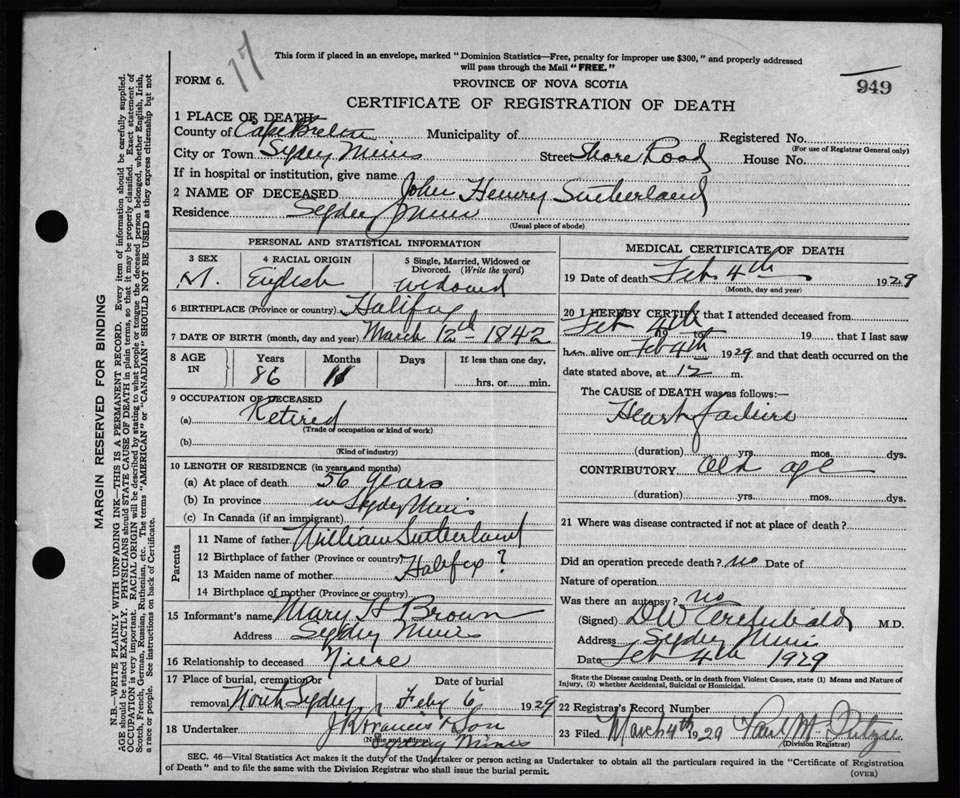 17
This form if placed in an envelope, marked "Dominion Statistics—Free, penalty for improper use $300," and properly addressed
will pass through the Mail "FREE."
FORM 6.
PROVINCE OF NOVA SCOTIA
949
CERTIFICATE OF REGISTRATION OF DEATH
1 PLACE OF DEATH
County of Cape Breton Municipality of Registered No.
(For use of Registrar General only)
City or Town Sydney Mines Street Shore Road House No.
If in hospital or institution, give name
2 NAME OF DECEASED John Henry Sutherland
Residence Sydney Mines
(Usual place of abode)
PERSONAL AND STATISTICAL INFORMATION
3 SEX 4 RACIAL ORIGIN 5 Single, Married, Widowed or
Divorced. (Write the word)
M. English widowed
6 BIRTHPLACE (Province or country) Halifax
7 DATE OF BIRTH (month, day and year) March 12th 1842
8 AGE IN Years Months Days If less than one day,
86 11 hrs. or min.
9 OCCUPATION OF DECEASED
(a) Retired
(Trade or occupation or kind of work)
(b)
(Kind of industry)
10 LENGTH OF RESIDENCE (in years and months)
(a) At place of death 56 years
(b) In province in Sydney Mines
(c) In Canada (if an immigrant)
Parents
11 Name of father William Sutherland
12 Birthplace of father (Province or country) Halifax ?
13 Maiden name of mother
14 Birthplace of mother (Province or country)
15 Informant's name Mary H Brown
Address Sydney Mines
16 Relationship to deceased Niece
17 Place of burial, cremation or Date of burial
removal North Sydney Feby 6 1929
18 Undertaker & Son
(Name and address) Sydney Mines
MEDICAL CERTIFICATE OF DEATH
19 Date of death Feb 4th 1929
(Month, day and year)
20 I HEREBY CERTIFY that I attended deceased from
Feb 4th 19 to 19 that I last saw
h alive on Feb 4th 1929 and that death occurred on the
date stated above, at 12 m.
The CAUSE of DEATH was as follows:—
Heart failure
(duration) yrs. mos. dys.
CONTRIBUTORY Old age
(duration) yrs. mos. dys.
21 Where was disease contracted if not at place of death?
Did an operation precede death? no Date of
Nature of operation
Was there an autopsy? no
(Signed) D W Archibald M.D.
Address Sydney Mines
Date Feb 4th 1929
State the Disease causing Death, or in death from Violent Causes, state (1) Means and Nature of
Injury, (2) whether Accidental, Suicidal or Homicidal.
22 Registrar's Record Number
23 Filed March 4th 1929 Paul
(Division Registrar)
SEC. 46—Vital Statistics Act makes it the duty of the Undertaker or person acting as Undertaker to obtain all the particulars required in the "Certificate of Registration
of Death" and to file the same with the Division Registrar who shall issue the burial permit.
(OVER)
MARGIN RESERVED FOR BINDING
N.B.—WRITE PLAINLY WITH UNFADING INK—THIS IS A PERMANENT RECORD. Every item of information should be carefully supplied.
AGE should be stated EXACTLY. PHYSICIANS should STATE CAUSE OF DEATH in plain terms, so that it may be properly classified. Exact statement of
OCCUPATION is very important. RACIAL ORIGIN will be described by stating to what people or tongue the deceased person belonged, whether English, Irish,
Scotch, French, German, Russian, Ruthenian, etc. The terms "AMERICAN" or "CANADIAN" SHOULD NOT BE USED as they express citizenship but not
a race or people. See instructions on back of Certificate.